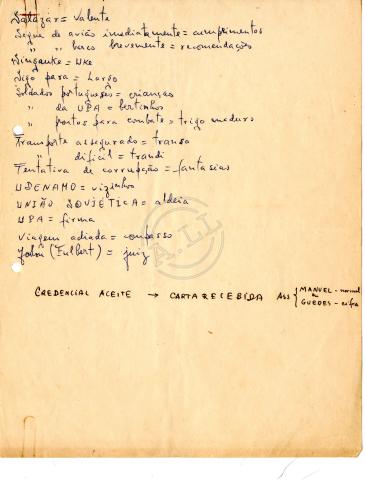 Salazar = Valente
Segue de avião imediatamente = cumprimentos
" " barco brevemente = recomendações
= Uke
Sigo para = Largo
Soldados portugueses = crianças
" da UPA = bertinhos
" prontos para combate = trigo maduro
Transporte assegurado = transo
" dificil = trandi
Tentativa de corrupção = fantasias
UDENAMO = vizinho
UNIÃO SOVIÉTICA = aldeia
UPA = firma
Viagem adiada = compasso
(Fulbert) = juiz
CREDENCIAL ACEITE → CARTA RECEBIDA ASS { MANUEL - normal
GUEDES - cifra
A.LL